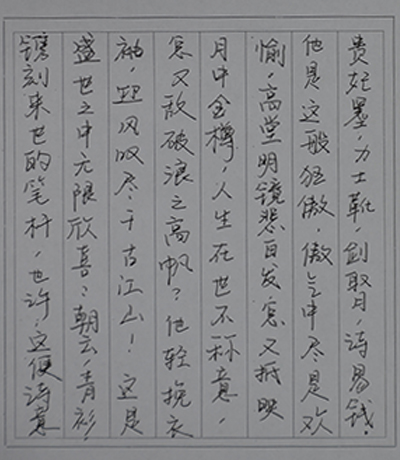 贵妃墨，力士靴，剑取月，诗易钱！
他是这般狂傲，傲气中尽是欢
愉，高堂明镜悲白发怎又抵映
月中金樽，人生在世不称意，
怎又敌破浪之高帆？他轻挽衣
袖，迎风叹尽，千古江山！这是
盛世之中无限欣喜：朝云，青衫，
镌刻来世的笔杆，也许，这便诗意